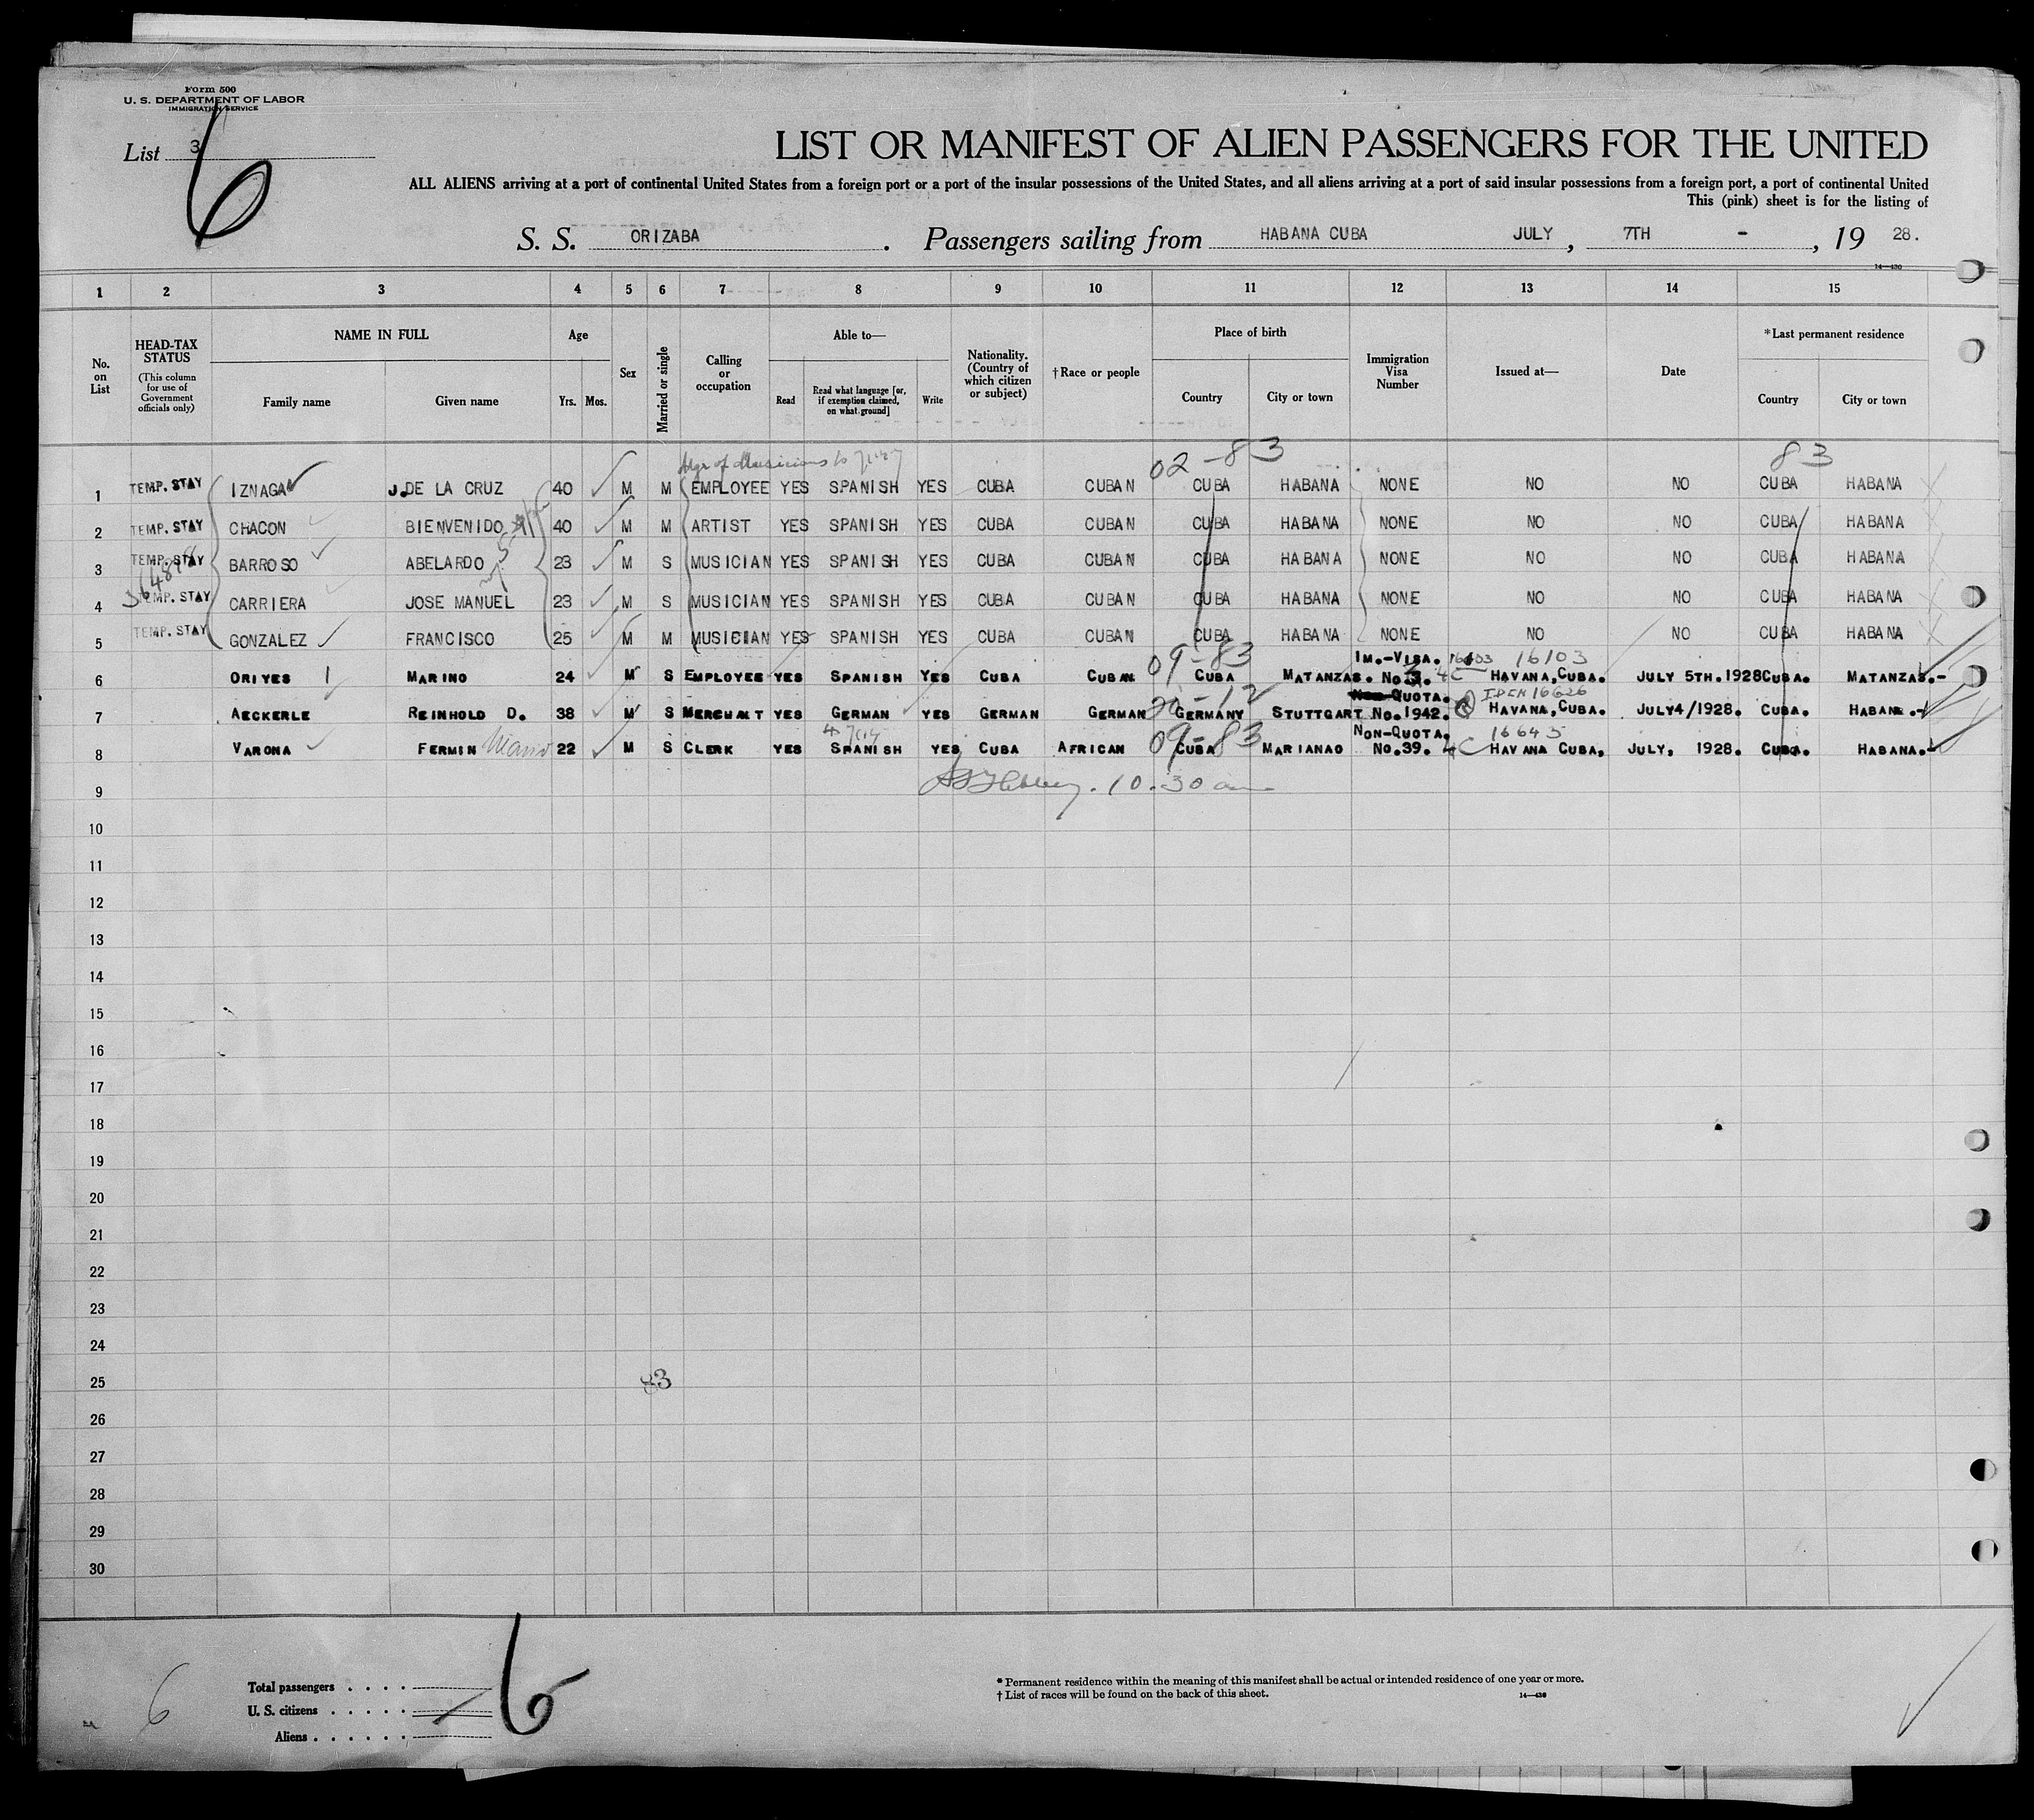 Form 500
U. S. DEPARTMENT OF LABOR
IMMIGRATION SERVICE
List 3
6
LIST OR MANIFEST OF ALIEN PASSENGERS FOR THE UNITED
ALL ALIENS arriving at a port of continental United States from a foreign port or a port of the insular possessions of the United States, and all aliens arriving at a port of said insular possessions from a foreign port, a port of continental United
This (pink) sheet is for the listing of
S. S. ORIZABA. Passengers sailing from HABANA CUBA JULY, 7TH - , 19 28.
14—430
1 2 3 4 5 6 7 8 9 10 11 12 13 14 15
No. on List
HEAD-TAX STATUS (This column for use of Government officials only)
NAME IN FULL Family name Given name
Age Yrs. Mos.
Sex
Married or single
Calling or occupation
Able to— Read Read what language [or, if exemption claimed, on what ground] Write
Nationality. (Country of which citizen or subject)
†Race or people
Place of birth Country City or town
Immigration Visa Number
Issued at—
Date
*Last permanent residence Country City or town
Mgr of Musicians 02-83 83
1 TEMP. STAY IZNAGA J. DE LA CRUZ 40 M M EMPLOYEE YES SPANISH YES CUBA CUBAN CUBA HABANA NONE NO NO CUBA HABANA
2 TEMP. STAY CHACON BIENVENIDO 40 M M ARTIST YES SPANISH YES CUBA CUBAN CUBA HABANA NONE NO NO CUBA HABANA
3 TEMP. STAY BARROSO ABELARDO 23 M S MUSICIAN YES SPANISH YES CUBA CUBAN CUBA HABANA NONE NO NO CUBA HABANA
4 TEMP. STAY CARRIERA JOSE MANUEL 23 M S MUSICIAN YES SPANISH YES CUBA CUBAN CUBA HABANA NONE NO NO CUBA HABANA
5 TEMP. STAY GONZALEZ FRANCISCO 25 M M MUSICIAN YES SPANISH YES CUBA CUBAN CUBA HABANA NONE NO NO CUBA HABANA
09-83 IM.-VISA. 16103 16103
6 ORIYES MARINO 24 M S EMPLOYEE YES SPANISH YES CUBA CUBAN CUBA MATANZAS. No.3. 4C HAVANA,CUBA. JULY 5TH.1928 CUBA. MATANZAS.-
QUOTA. 16626
7 AECKERLE REINHOLD D. 38 M S MERCHANT YES GERMAN YES GERMAN GERMAN GERMANY STUTTGART No.1942. HAVANA,CUBA. JULY4/1928. CUBA. HABANA.-
09-83 NON-QUOTA. 16645
8 VARONA FERMIN 22 M S CLERK YES SPANISH YES CUBA AFRICAN CUBA MARIANAO No.39. 4C HAVANA CUBA, JULY, 1928. CUBA. HABANA.-
9 10.30 am
10
11
12
13
14
15
16
17
18
19
20
21
22
23
24
25 83
26
27
28
29
30
6
Total passengers . . . .
U. S. citizens . . . . .
Aliens . . . . . .
6
* Permanent residence within the meaning of this manifest shall be actual or intended residence of one year or more.
† List of races will be found on the back of this sheet.
14—430